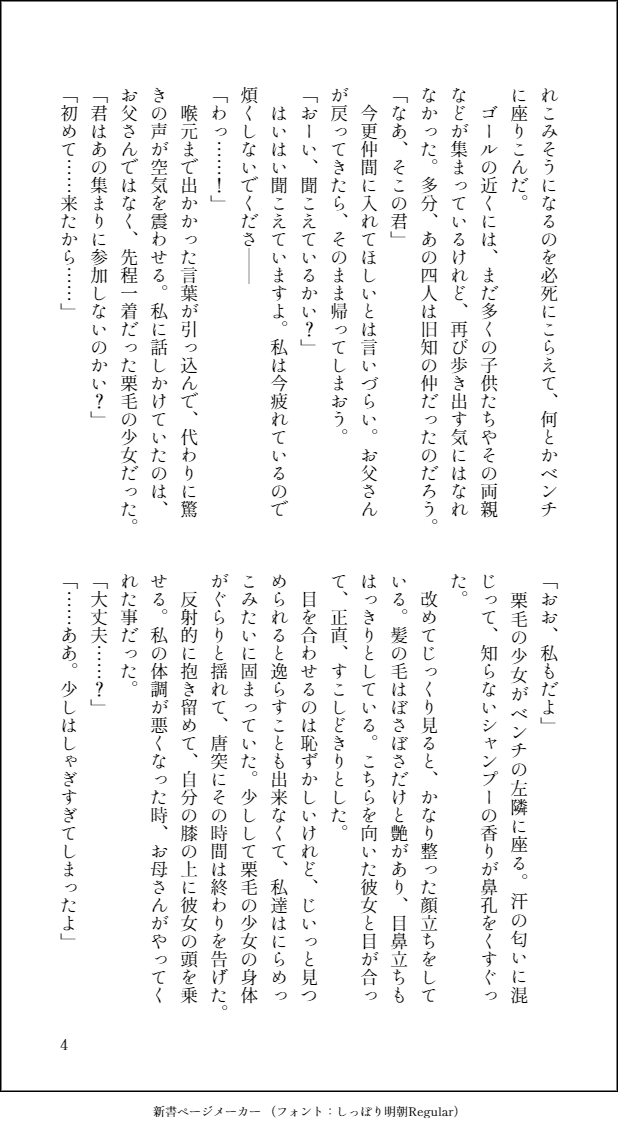 れこみそうになるのを必死にこらえて、何とかベンチ
に座りこんだ。
　ゴールの近くには、まだ多くの子供たちやその両親
などが集まっているけれど、再び歩き出す気にはなれ
なかった。多分、あの四人は旧知の仲だったのだろう。
「なあ、そこの君」
　今更仲間に入れてほしいとは言いづらい。お父さん
が戻ってきたら、そのまま帰ってしまおう。
「おーい、聞こえているかい？」
　はいはい聞こえていますよ。私は今疲れているので
煩くしないでくださ――
「わっ……！」
　喉元まで出かかった言葉が引っ込んで、代わりに驚
きの声が空気を震わせる。私に話しかけていたのは、
お父さんではなく、先程一着だった栗毛の少女だった。
「君はあの集まりに参加しないのかい？」
「初めて……来たから……」
「おお、私もだよ」
　栗毛の少女がベンチの左隣に座る。汗の匂いに混
じって、知らないシャンプーの香りが鼻孔をくすぐっ
た。
　改めてじっくり見ると、かなり整った顔立ちをして
いる。髪の毛はぼさぼさだけと艶があり、目鼻立ちも
はっきりとしている。こちらを向いた彼女と目が合っ
て、正直、すこしどきりとした。
　目を合わせるのは恥ずかしいけれど、じいっと見つ
められると逸らすことも出来なくて、私達はにらめっ
こみたいに固まっていた。少しして栗毛の少女の身体
がぐらりと揺れて、唐突にその時間は終わりを告げた。
　反射的に抱き留めて、自分の膝の上に彼女の頭を乗
せる。私の体調が悪くなった時、お母さんがやってく
れた事だった。
「大丈夫……？」
「……ああ。少しはしゃぎすぎてしまったよ」
4
新書ページメーカー （フォント：しっぽり明朝Regular）